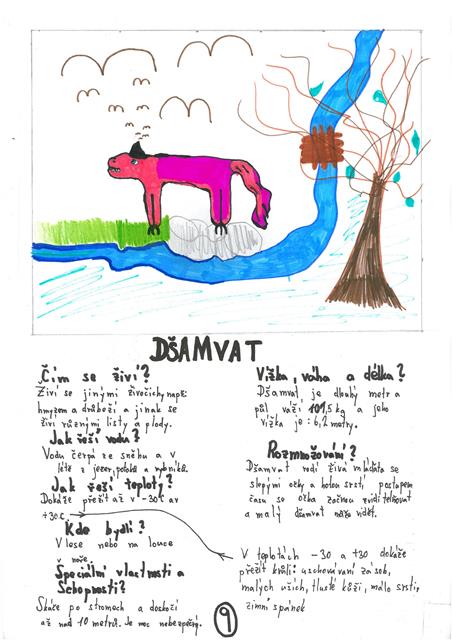 DŠAMVAT
Čím se živí?
Živí se jinými živočichy např:
hmyzem a drůbeží a jinak se
živí různými listy a plody.
Jak řeší vodu?
Vodu čerpá ze sněhu a v
létě z jezer, potoků a rybníků.
Jak řeší teploty?
Dokáže přežít až v -30°C av
+30°C
Kde bydlí?
V lese nebo na louce
Speciální vlastnosti a
Schopnosti?
Skáče po stromech a doskočí
až nad 10 metrů. Je moc nebezpečný.
Výška, váha a délka?
Džamvat je dlouhý metr a
půl váží 101,5 kg a jeho
výška je: 6,2 metry.
Rozmnožování?
Džamvat rodí živá mláďata se
slepými očky a holou srstí postupem
času se očka začnou
a malý džamvat může vidět.
V teplotách -30 a +30 dokáže
přežít kvůli: uschovávání zásob,
malých uších, tlusté kůži, málo srsti,
zimní spánek
9